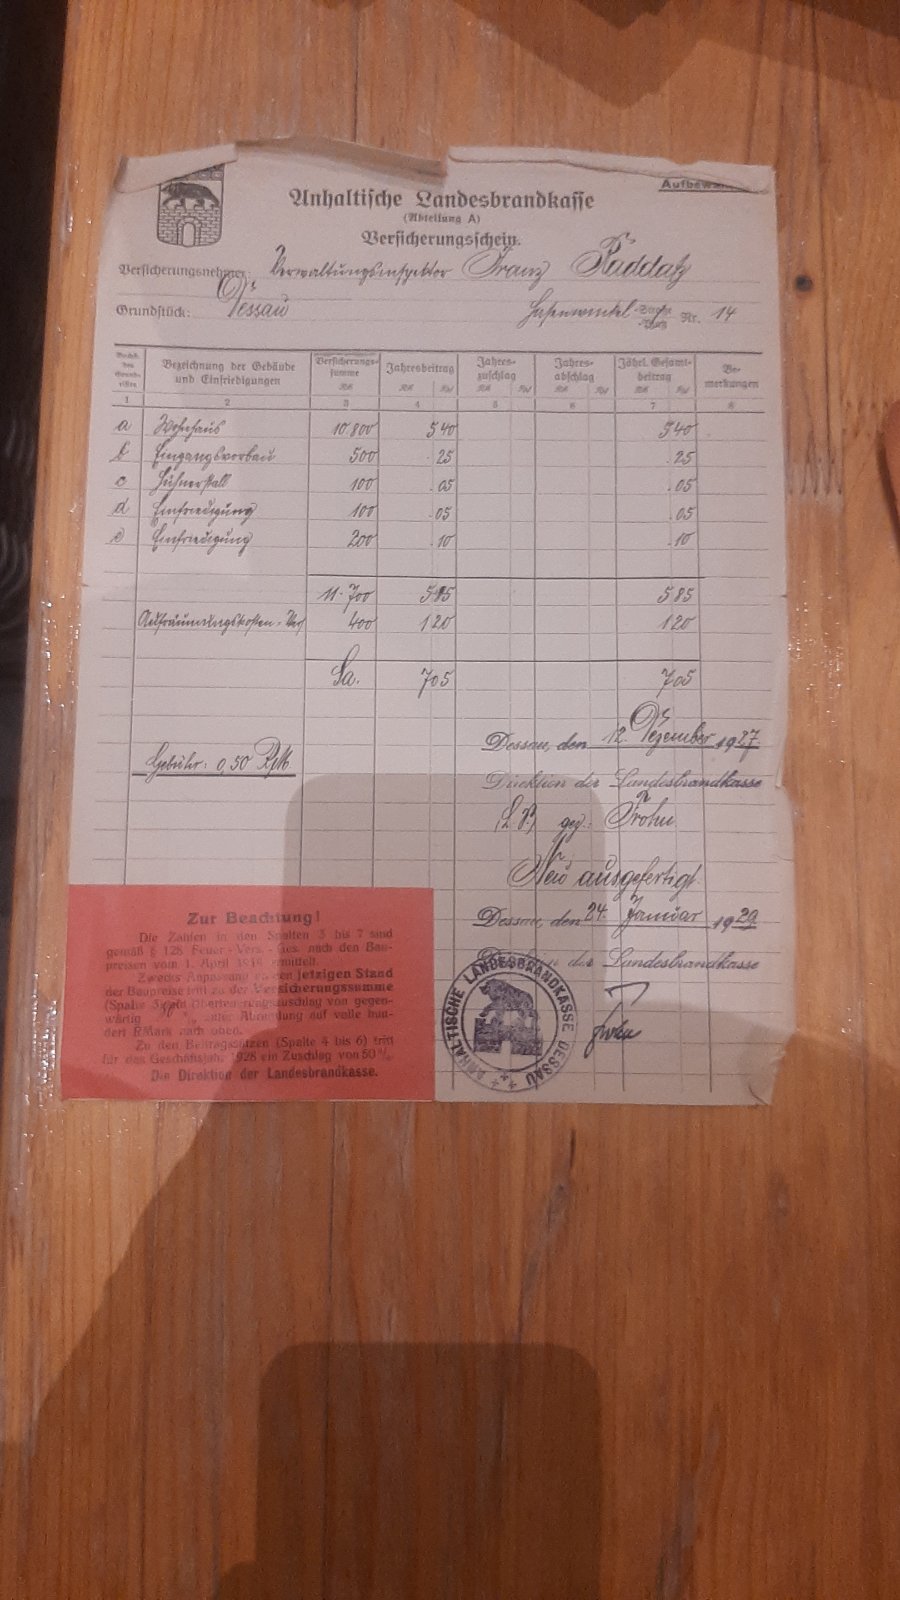 Anhaltische Landesbrandkasse
(Abteilung A)
Versicherungsschein.
Versicherungsnehmer: Verwaltungsinspektor Franz Raddatz
Grundstück: Dessau Hasenwinkel Nr. 14
Bezeichnung der Gebäude und Einfriedigungen Versicherungssumme Jahresbeitrag Jahreszuschlag Jahresabschlag Jährl. Gesamtbeitrag Bemerkungen
1 2 3 4 5 6 7 8
a Wohnhaus 10 800 5 40 5 40
b Eingangsvorbau 500 . 25 . 25
c Hühnerstall 100 . 05 . 05
d Einfriedigung 100 . 05 . 05
e Einfriedigung 200 . 10 . 10
11 700 5 85 5 85
Aufräumungskosten-Vers 400 1 20 1 20
Sa. 7 05 7 05
Dessau, den 12. Dezember 1927.
Gebühr: 0,50 RM.
Direktion der Landesbrandkasse
(L.S.) gez.:
Neu ausgefertigt
Dessau, den 24. Januar 1929
Direktion der Landesbrandkasse
ANHALTISCHE LANDESBRANDKASSE DESSAU
Zur Beachtung!
Die Zahlen in den Spalten 3 bis 7 sind
gemäß § 128 Feuer-Vers.-Ges. nach den Bau-
preisen vom 1. April 1914 ermittelt.
Zwecks Anpassung an den jetzigen Stand
der Baupreise tritt zu der Versicherungssumme
(Spalte 3) ein Überteuerungszuschlag von gegen-
wärtig % unter Abrundung auf volle hun-
dert RMark nach oben.
Zu den Beitragssätzen (Spalte 4 bis 6) tritt
für das Geschäftsjahr 1928 ein Zuschlag von 50 %.
Die Direktion der Landesbrandkasse.